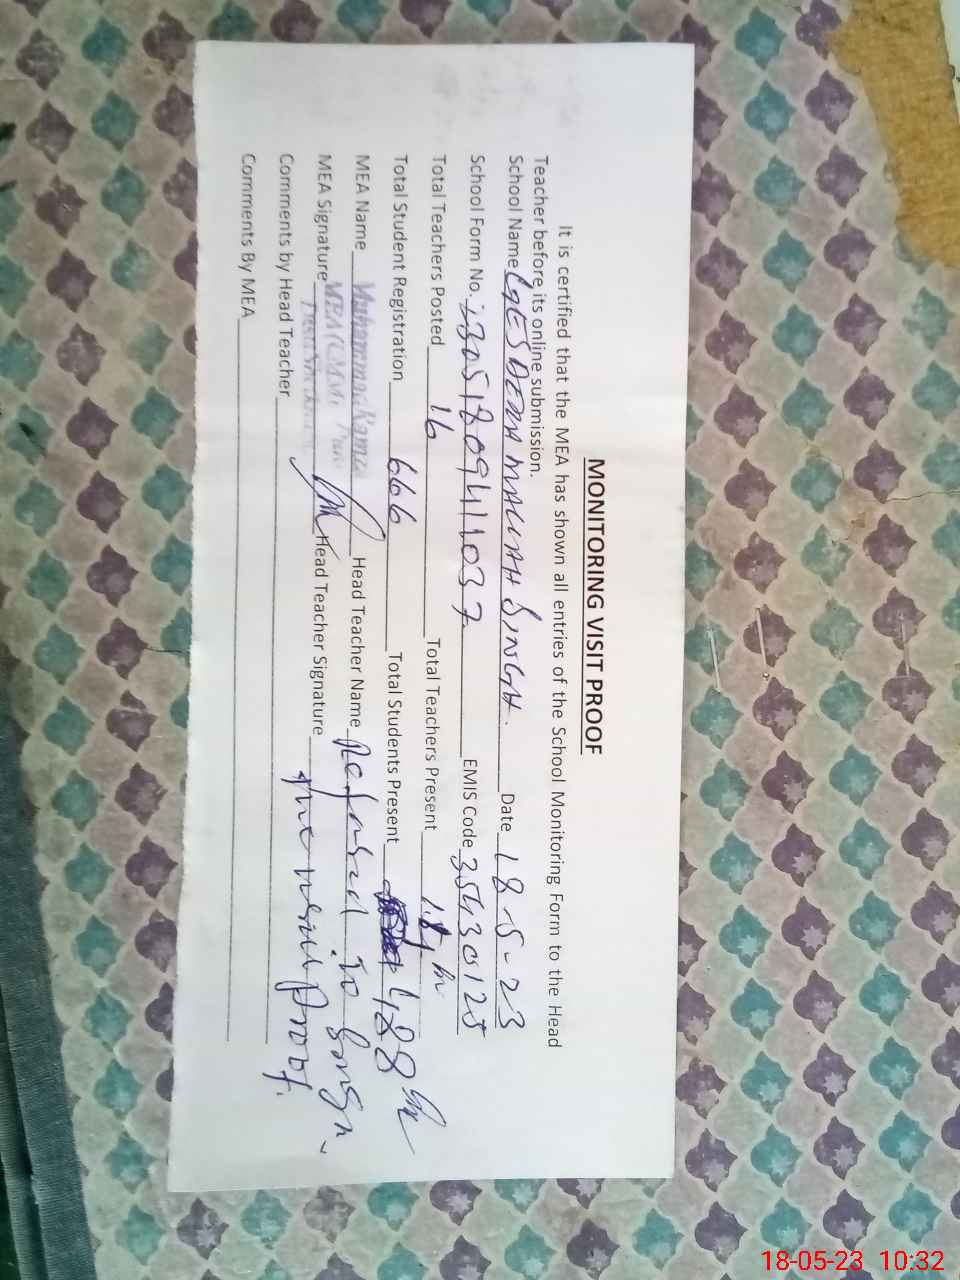 MONITORING VISIT PROOF
It is certified that the MEA has shown all entries of the School Monitoring Form to the Head
Teacher before its online submission.
School Name GGES DERA MALLAH SINGH. Date 18-5-23
School Form No. Total EMIS Code 35430125
Total Teachers Posted 16 Total Teachers Present
Total Student Registration 666 Total Students Present 488
MEA Name Muhammad Head Teacher Name Refused to Sign
MEA Signature MEA Head Teacher Signature the visit Proof.
Comments by Head Teacher
Comments By MEA
18-05-23 10:32